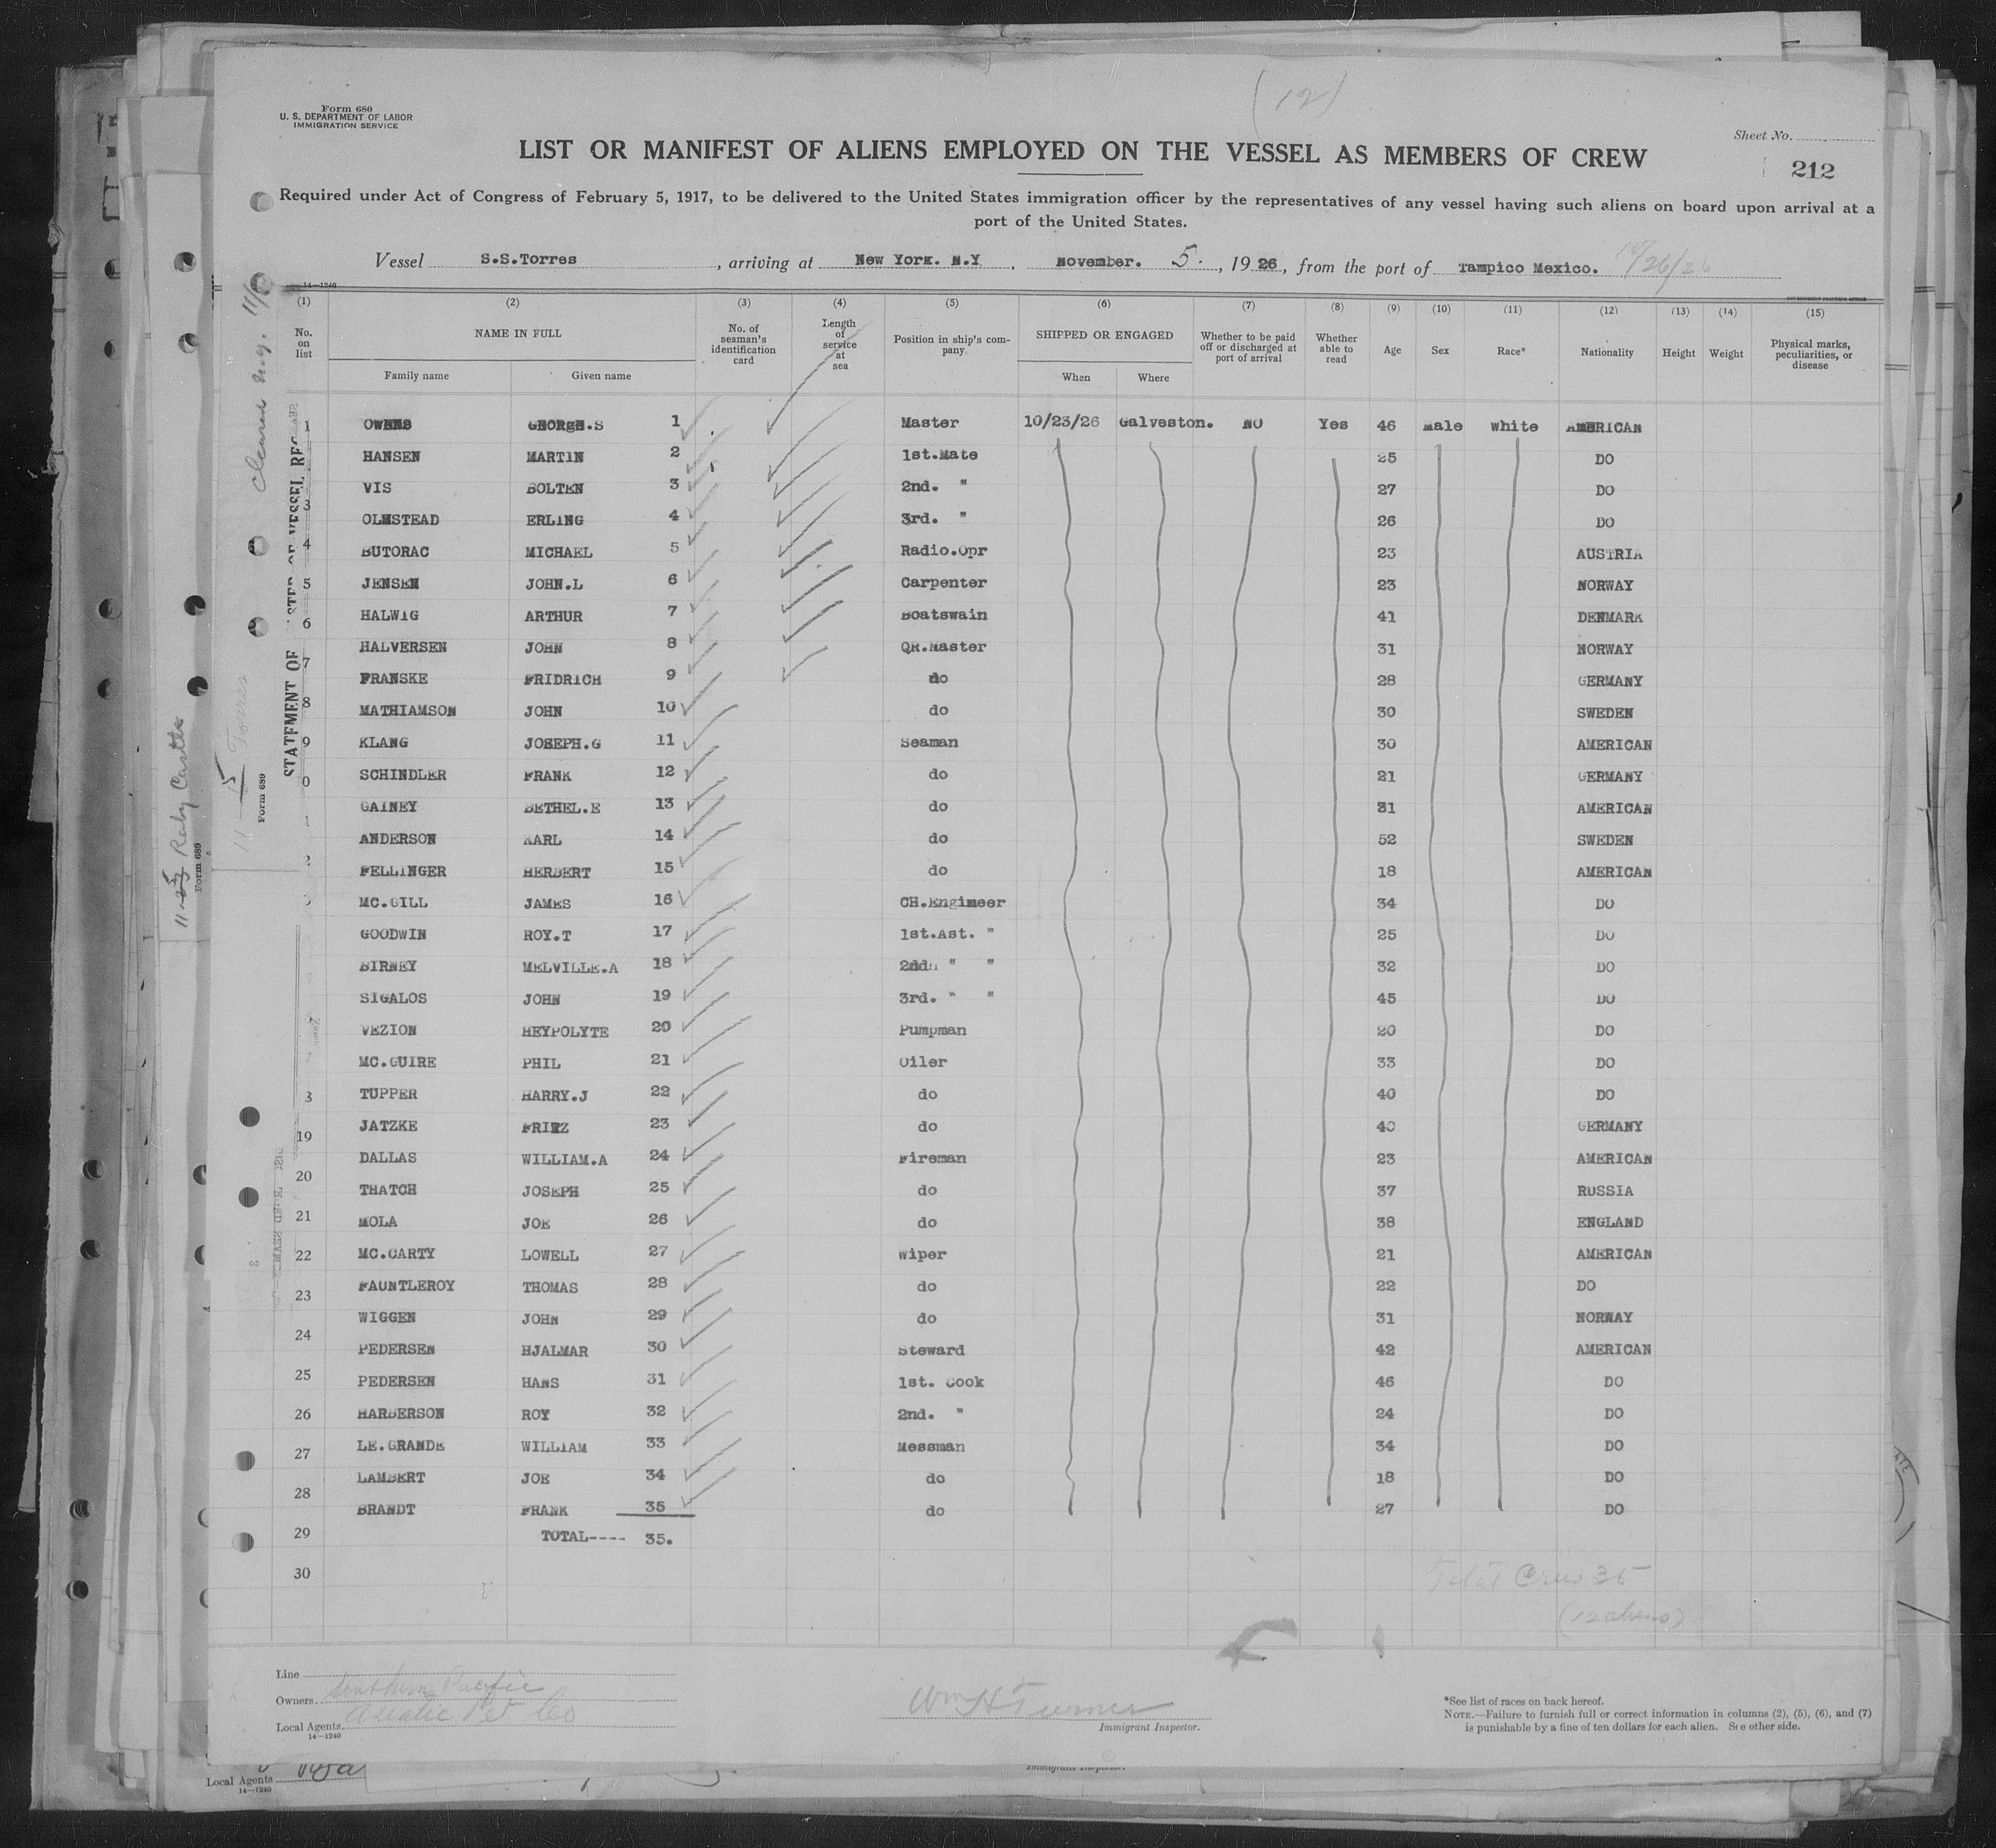 (12)
Form 680
U. S. DEPARTMENT OF LABOR
IMMIGRATION SERVICE
Sheet No.
LIST OR MANIFEST OF ALIENS EMPLOYED ON THE VESSEL AS MEMBERS OF CREW
212
Required under Act of Congress of February 5, 1917, to be delivered to the United States immigration officer by the representatives of any vessel having such aliens on board upon arrival at a
port of the United States.
Vessel S.S.Torres, arriving at New York. N.Y, November. 5., 1926, from the port of Tampico Mexico. 10/26/26
14—1240
(1) (2) (3) (4) (5) (6) (7) (8) (9) (10) (11) (12) (13) (14) (15)
No. on list NAME IN FULL No. of seaman's identification card Length of service at sea Position in ship's company SHIPPED OR ENGAGED Whether to be paid off or discharged at port of arrival Whether able to read Age Sex Race* Nationality Height Weight Physical marks, peculiarities, or disease
Family name Given name When Where
1 OWENS GEORGE.S 1 Master 10/23/26 Galveston. NO Yes 46 Male White AMERICAN
HANSEN MARTIN 2 1st.Mate 25 DO
VIS BOLTEN 3 2nd. " 27 DO
3 OLMSTEAD ERLING 4 3rd. " 26 DO
4 BUTORAC MICHAEL 5 Radio.Opr 23 AUSTRIA
5 JENSEN JOHN.L 6 Carpenter 23 NORWAY
6 HALWIG ARTHUR 7 Boatswain 41 DENMARK
HALVERSEN JOHN 8 QR.Master 31 NORWAY
7 FRANSKE FRIDRICH 9 do 28 GERMANY
8 MATHIAMSON JOHN 10 do 30 SWEDEN
9 KLANG JOSEPH.G 11 Seaman 30 AMERICAN
0 SCHINDLER FRANK 12 do 21 GERMANY
GAINEY BETHEL.E 13 do 31 AMERICAN
ANDERSON KARL 14 do 52 SWEDEN
2 FELLINGER HERBERT 15 do 18 AMERICAN
MC.GILL JAMES 16 CH.Engineer 34 DO
GOODWIN ROY.T 17 1st.Ast. " 25 DO
BIRNEY MELVILLE.A 18 2nd " " 32 DO
SIGALOS JOHN 19 3rd. " " 45 DO
VEZION HEYPOLYTE 20 Pumpman 20 DO
MC.GUIRE PHIL 21 Oiler 33 DO
TUPPER HARRY.J 22 do 40 DO
19 JATZKE FRITZ 23 do 40 GERMANY
DALLAS WILLIAM.A 24 Fireman 23 AMERICAN
20 THATCH JOSEPH 25 do 37 RUSSIA
21 MOLA JOE 26 do 38 ENGLAND
22 MC.CARTY LOWELL 27 Wiper 21 AMERICAN
23 FAUNTLEROY THOMAS 28 do 22 DO
WIGGEN JOHN 29 do 31 NORWAY
24 PEDERSEN HJALMAR 30 Steward 42 AMERICAN
25 PEDERSEN HANS 31 1st. Cook 46 DO
26 HARBERSON ROY 32 2nd. " 24 DO
27 LE.GRANDE WILLIAM 33 Messman 34 DO
28 LAMBERT JOE 34 do 18 DO
BRANDT FRANK 35 do 27 DO
29 TOTAL---- 35.
30
Total Crew 35
(12 aliens)
Line
Owners Southern Pacific
Local Agents
14—1240
Wm H Turner
Immigrant Inspector.
*See list of races on back hereof.
NOTE.—Failure to furnish full or correct information in columns (2), (5), (6), and (7)
is punishable by a fine of ten dollars for each alien. See other side.
Local Agents
14—1240
Cleared N.Y.
STATEMENT OF
Form 689
11-5 Torres
Form 689